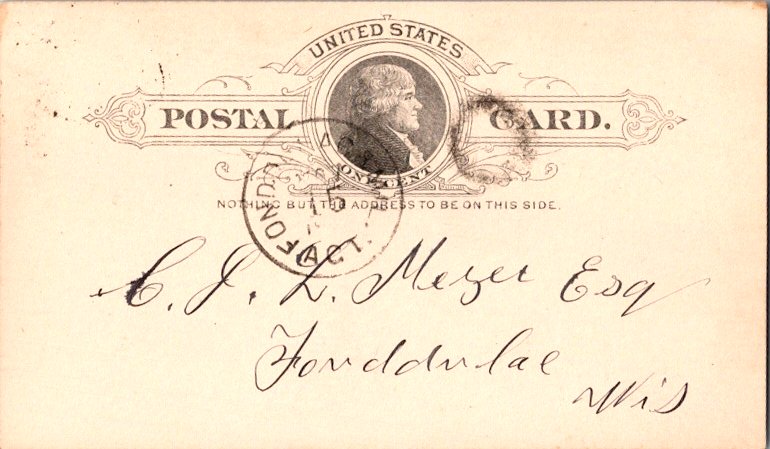 UNITED STATES
POSTAL CARD.
ONE CENT
NOTHING BUT THE ADDRESS TO BE ON THIS SIDE.
FOND D
15
C. J. L. Meyer Esq
Fonddulac
Wis